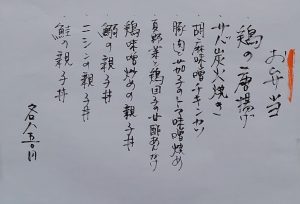 お弁当
・鶏の唐揚げ
・サバ炭火焼き
・胡麻味噌チキンカツ
・豚肉とナスのトマト味噌炒め
・夏野菜と鶏団子の甘酢あんかけ
・鶏味噌炒めの親子丼
・鰤の親子丼
・ニシンの親子丼
・鮭の親子丼
各八五〇円